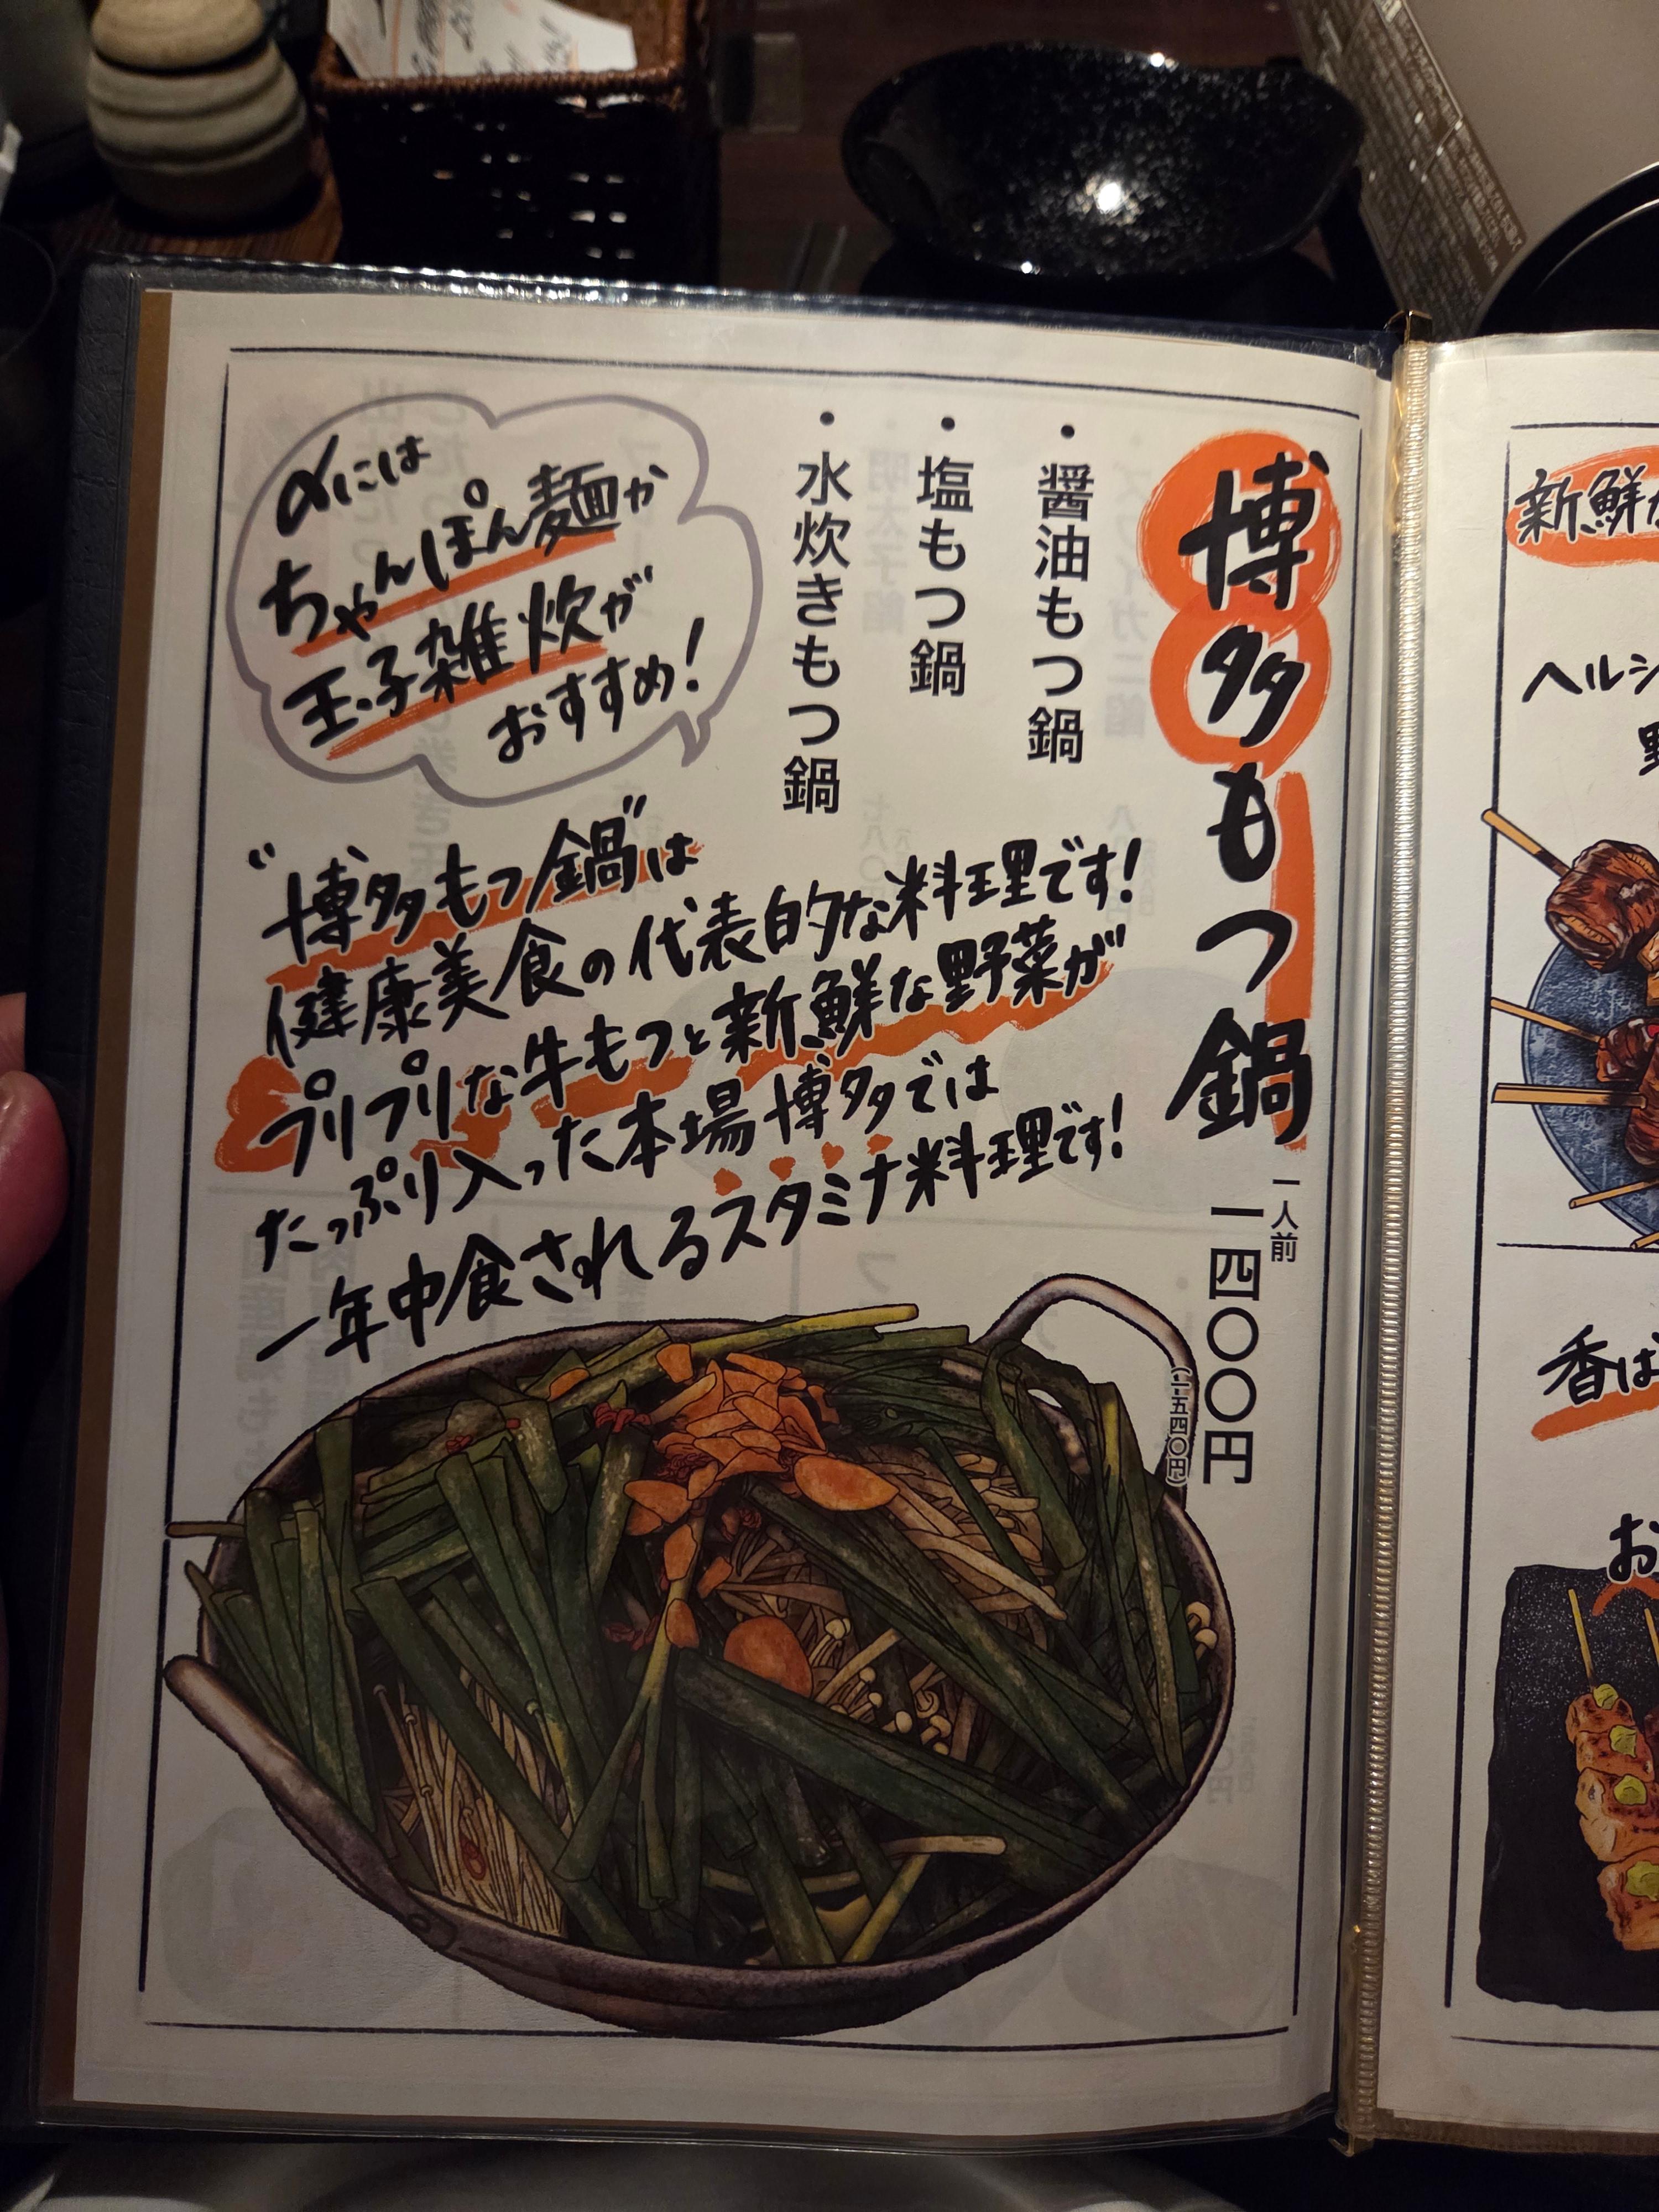 博多もつ鍋
一人前
一四〇〇円
(一五四〇円)
・醤油もつ鍋
・塩もつ鍋
・水炊きもつ鍋
〆には
ちゃんぽん麺か
玉子雑炊が
おすすめ!
"博多もつ鍋"は
健康美食の代表的な料理です!
プリプリな牛もつと新鮮な野菜が
たっぷり入った本場博多では
一年中食されるスタミナ料理です!
新鮮
ヘルシ
野
香ば
お